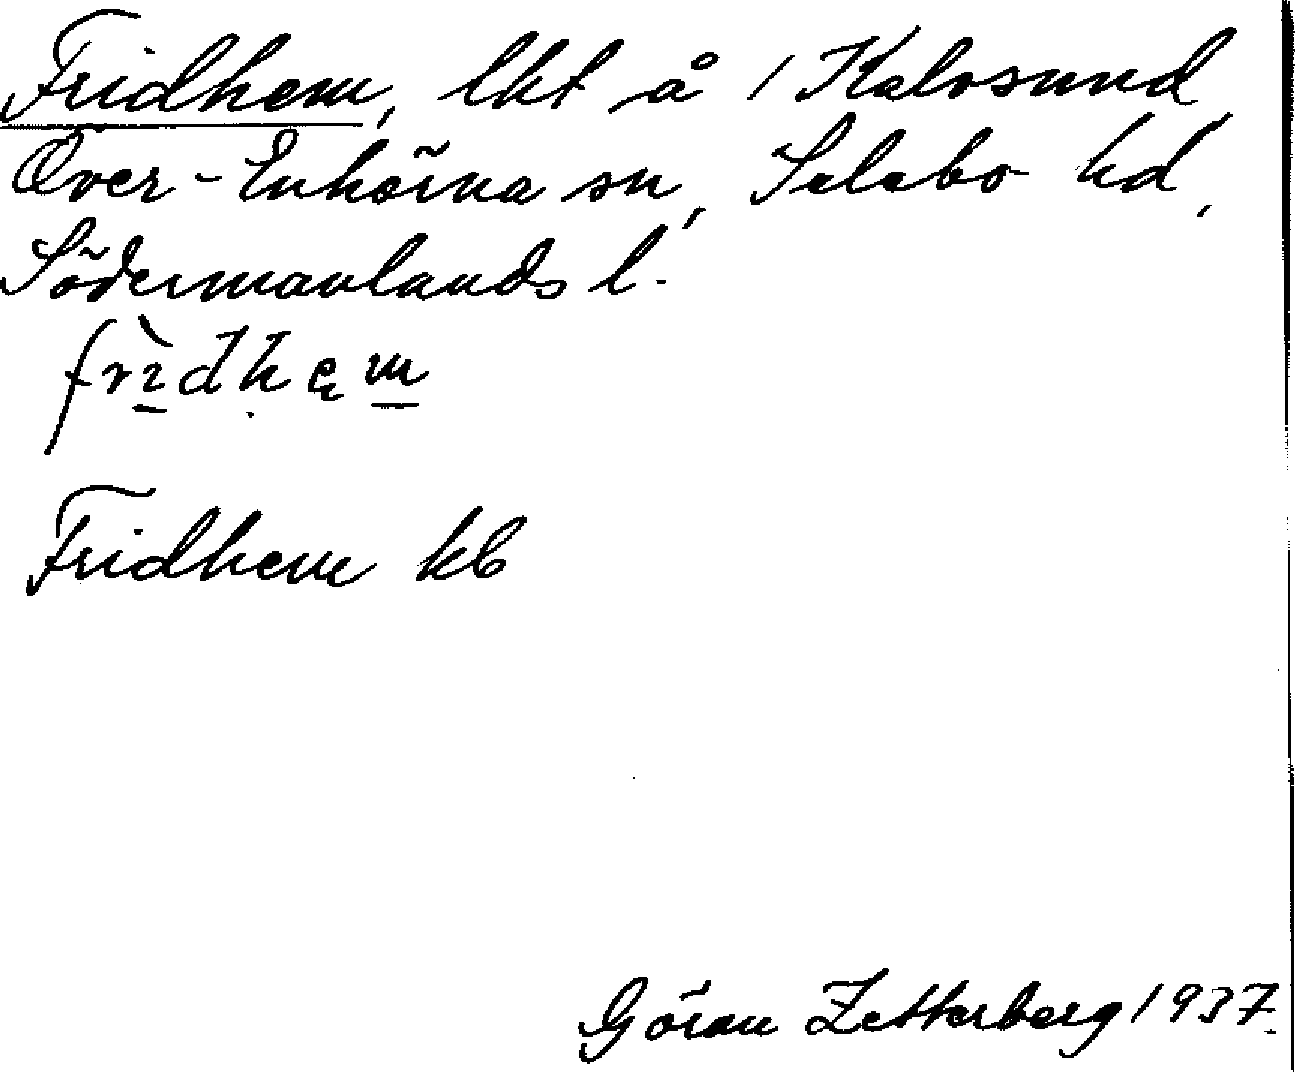 Fridhem, lht å 1 Kalvsund,
Över-Enhörna sn, Selebo hd,
Södermanlands l.
frìdhęm
Fridhem kb
Göran Zetterberg 1937.